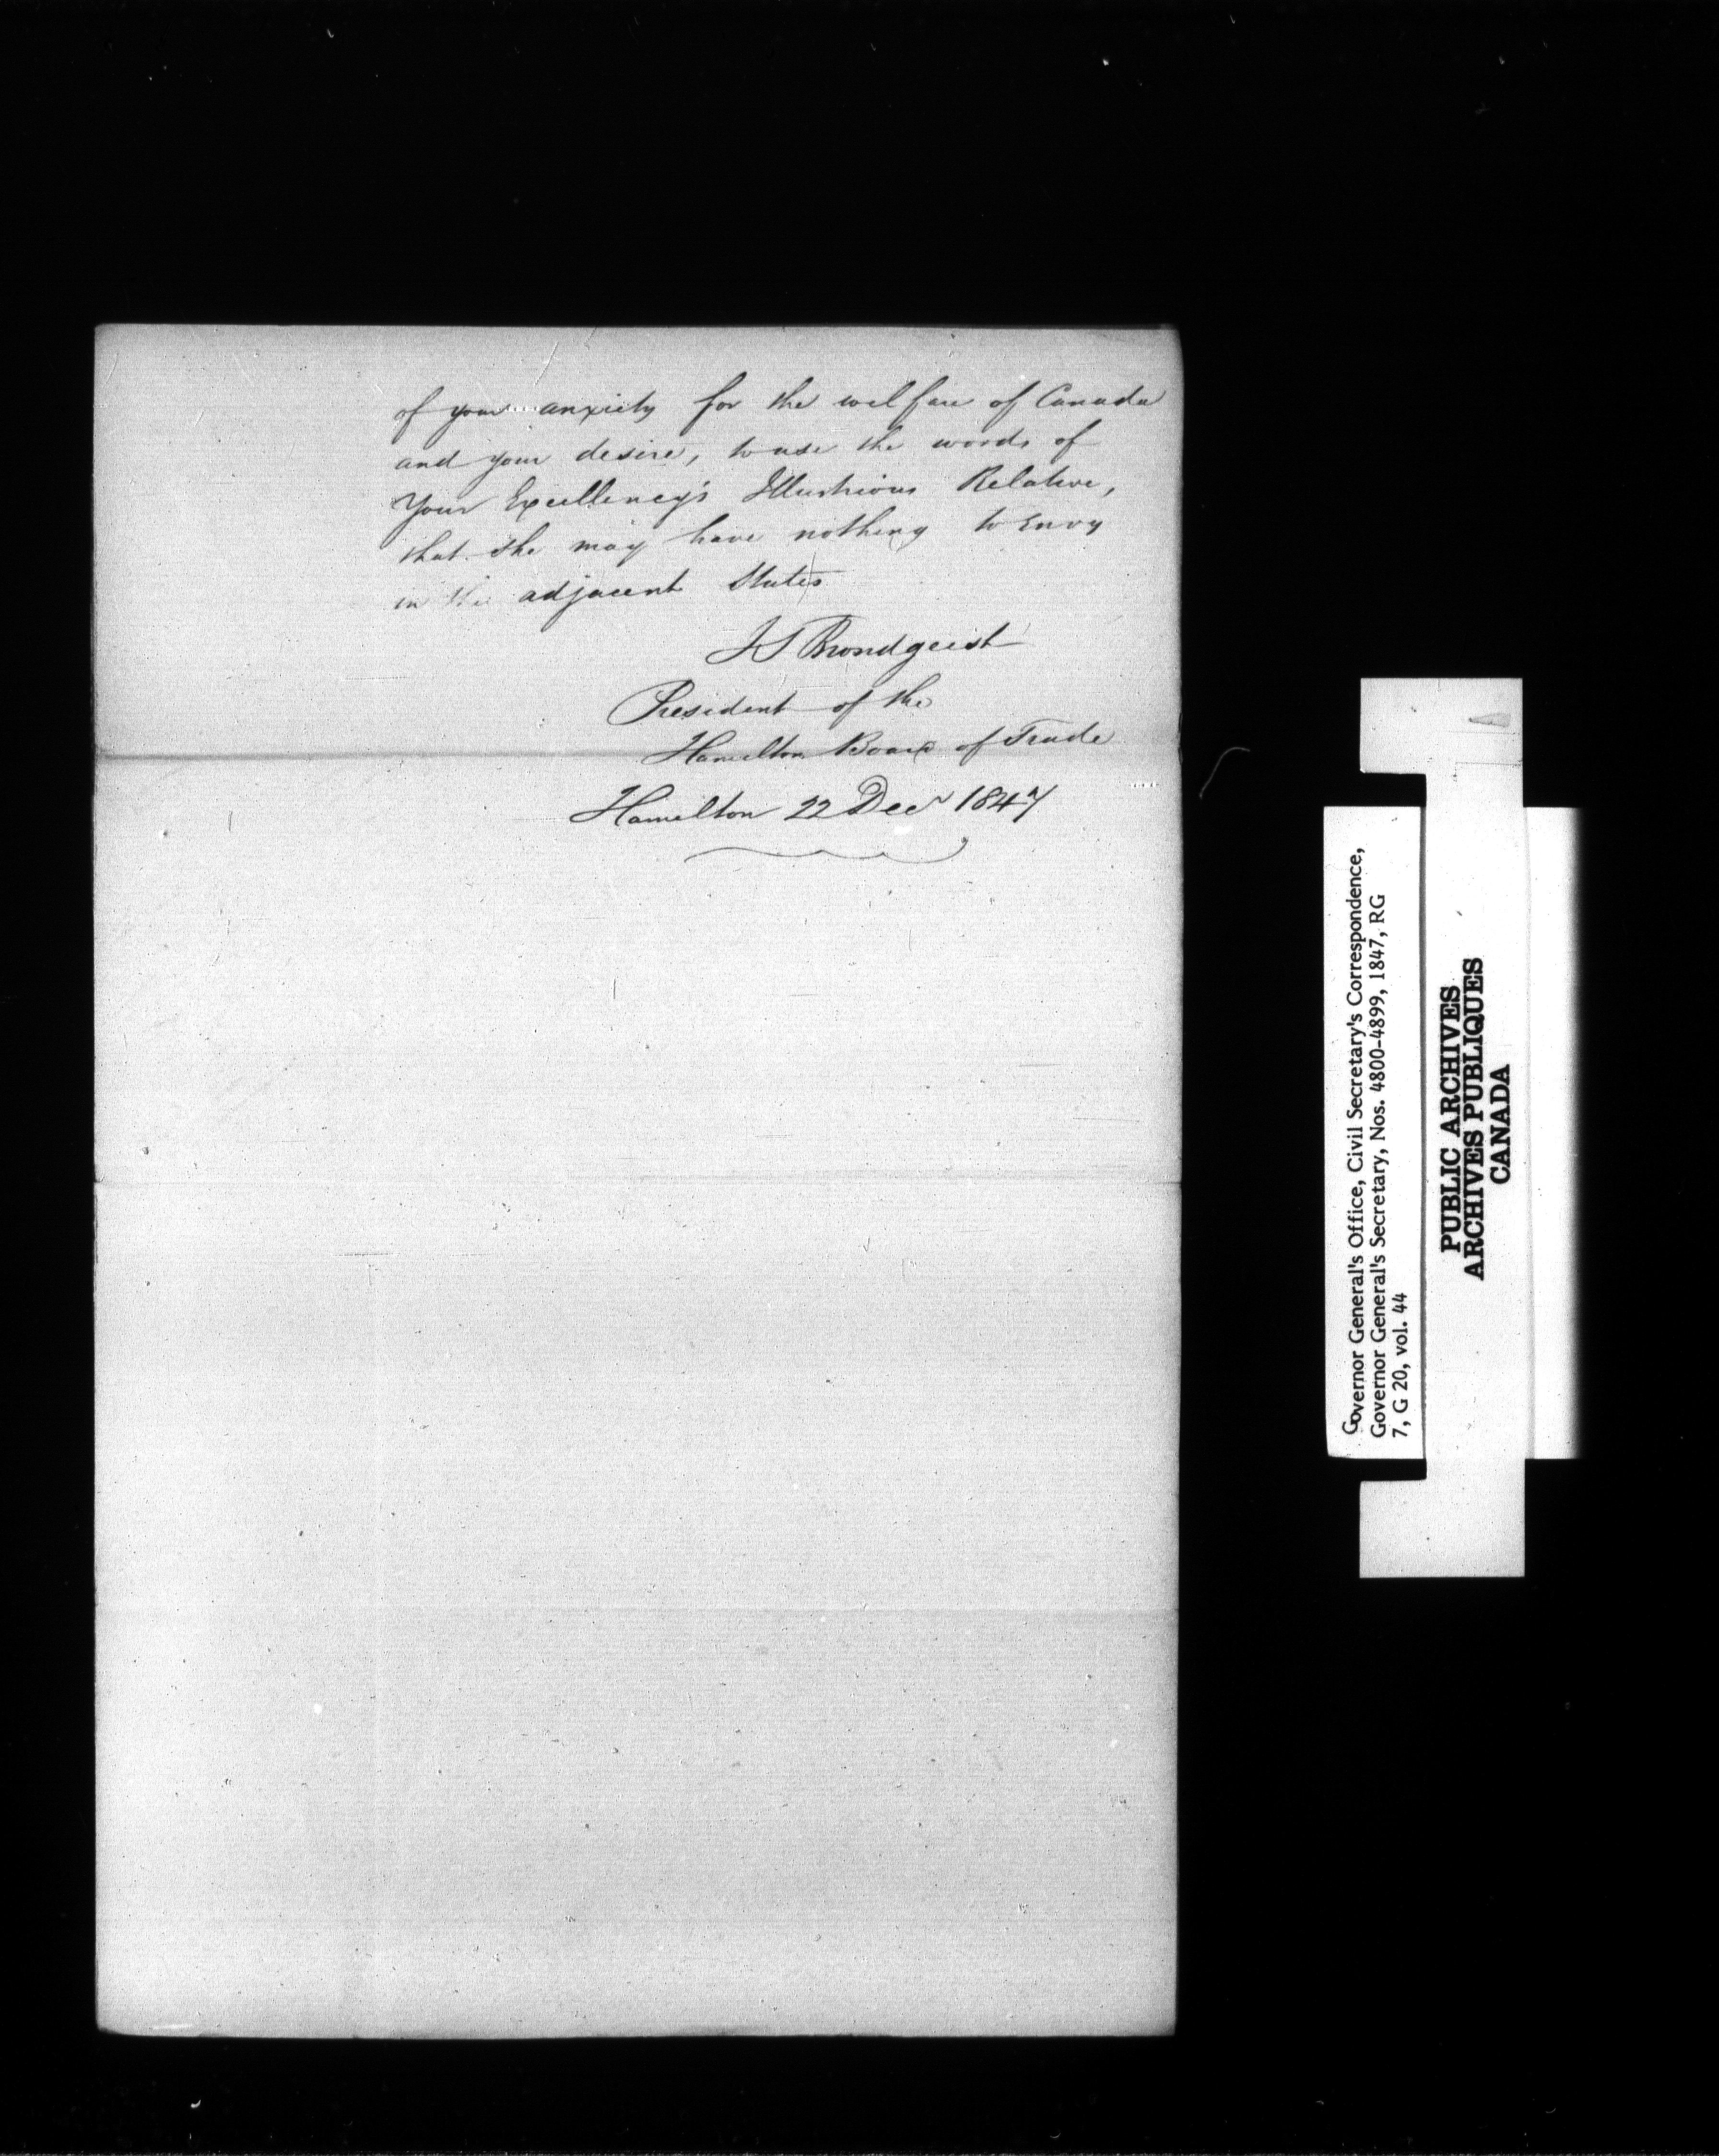 of your anxiety for the welfare of Canada
and your desire, to use the words of
Your Excellency's Illustrious Relative,
that she may have nothing to Envy
in the adjacent States
J S Brondgeest
President of the
Hamilton Board of Trade
Hamilton 22 Decr 1847
Governor General's Office, Civil Secretary's Correspondence,
Governor General's Secretary, Nos. 4800-4899, 1847, RG
7, G 20, vol. 44
PUBLIC ARCHIVES
ARCHIVES PUBLIQUES
CANADA